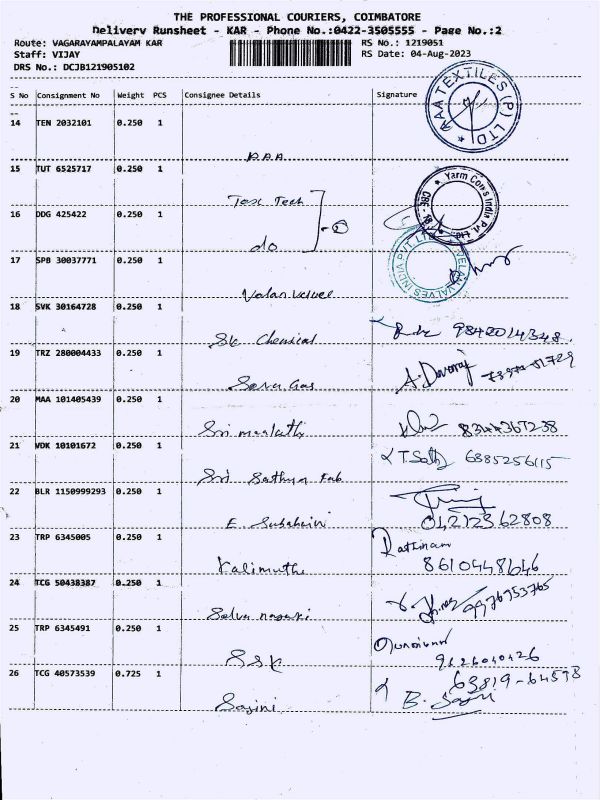 THE PROFESSIONAL COURIERS, COIMBATORE
Delivery Runsheet - KAR - Phone No.:0422-3505555 - Page No.:2
Route: VAGARAYAMPALAYAM KAR RS No.: 1219051
Staff: VIJAY RS Date: 04-Aug-2023
DRS No.: DCJB121905102
S No Consignment No Weight PCS Consignee Details Signature
AAA TEXTILES (P) LTD
14 TEN 2032101 0.250 1
AAA
15 TUT 6525717 0.250 1
Yarn Corps India Pvt. Ltd
CBE - 18
Text Tech
16 DDG 425422 0.250 1
do
17 SPB 30037771 0.250 1
VELAN VALVES INDIA PVT LTD
Velan valve
18 SVK 30164728 0.250 1
Sk Chemical 9842014348
19 TRZ 280004433 0.250 1
Gas A. Devaraj
20 MAA 101405439 0.250 1
Sri 8344367238
21 VDK 10101672 0.250 1
Sri Sathya Fab 6885256115
22 BLR 1150999293 0.250 1
E. 04212362808
23 TRP 6345005 0.250 1
Rathinam
Kalimuthu 8610448646
24 TCG 50438387 0.250 1
Selva 9976753765
25 TRP 6345491 0.250 1
SSK
26 TCG 40573539 0.725 1
63819-64598
Sajini B. Sajini